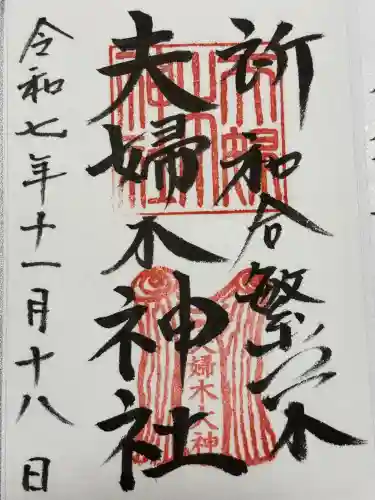 祈和合繁栄
夫婦木神社
令和七年十一月十八日
夫婦木大神